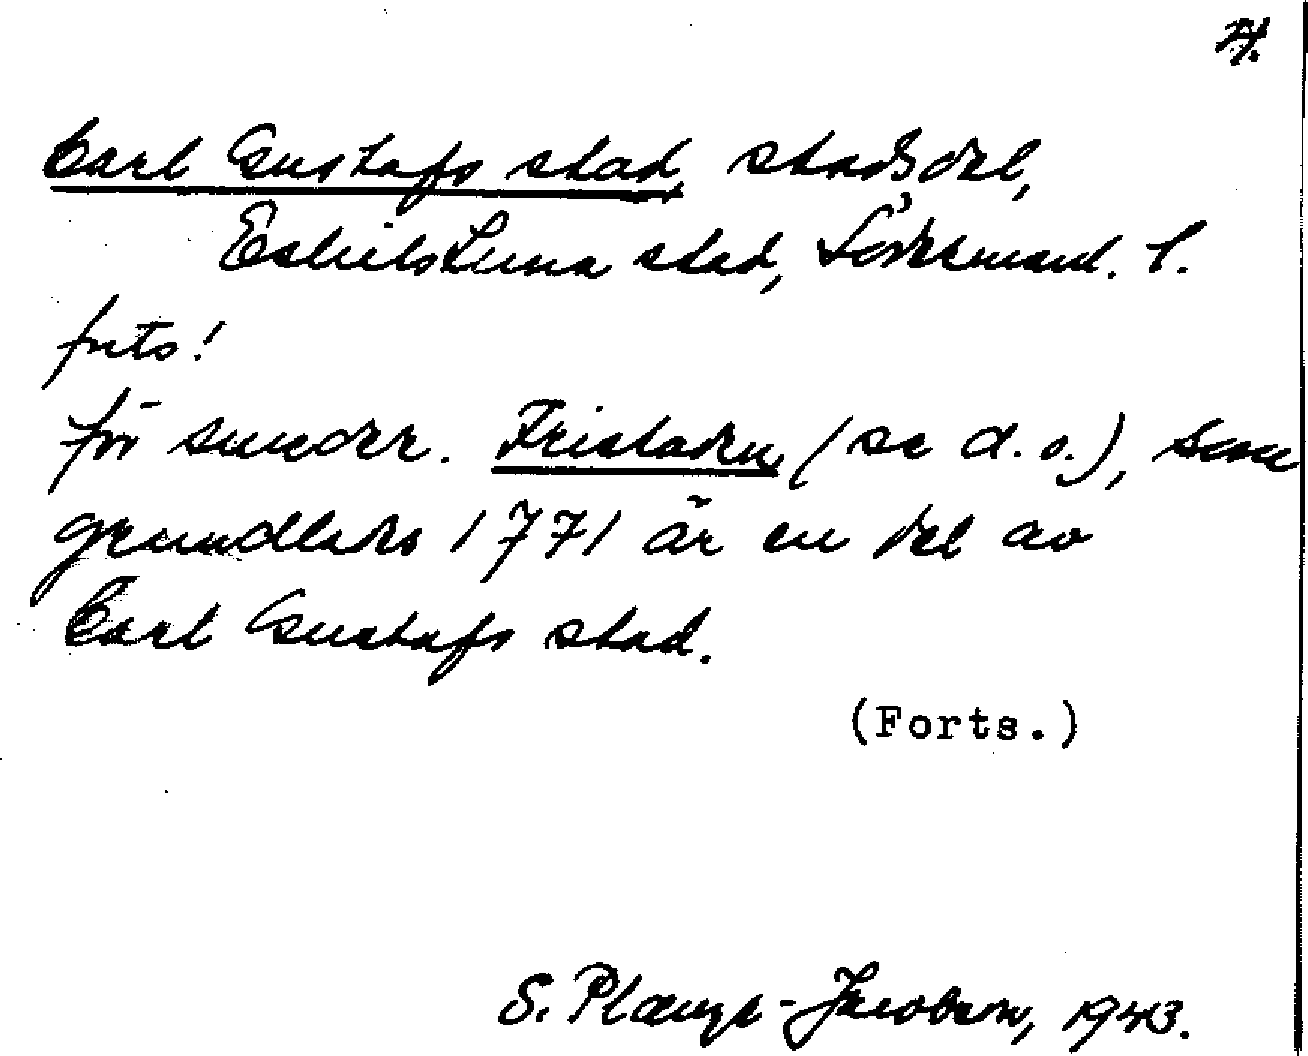 4.
Carl Gustafs stad, stadsdel,
Eskilstuna stad, Södermanl. l.
forts!
för smeder. Fristaden (se d.o.), som
grundlades 1771 är en del av
Carl Gustafs stad.
(Forts.)
S. Plænge-Jacobson, 1943.